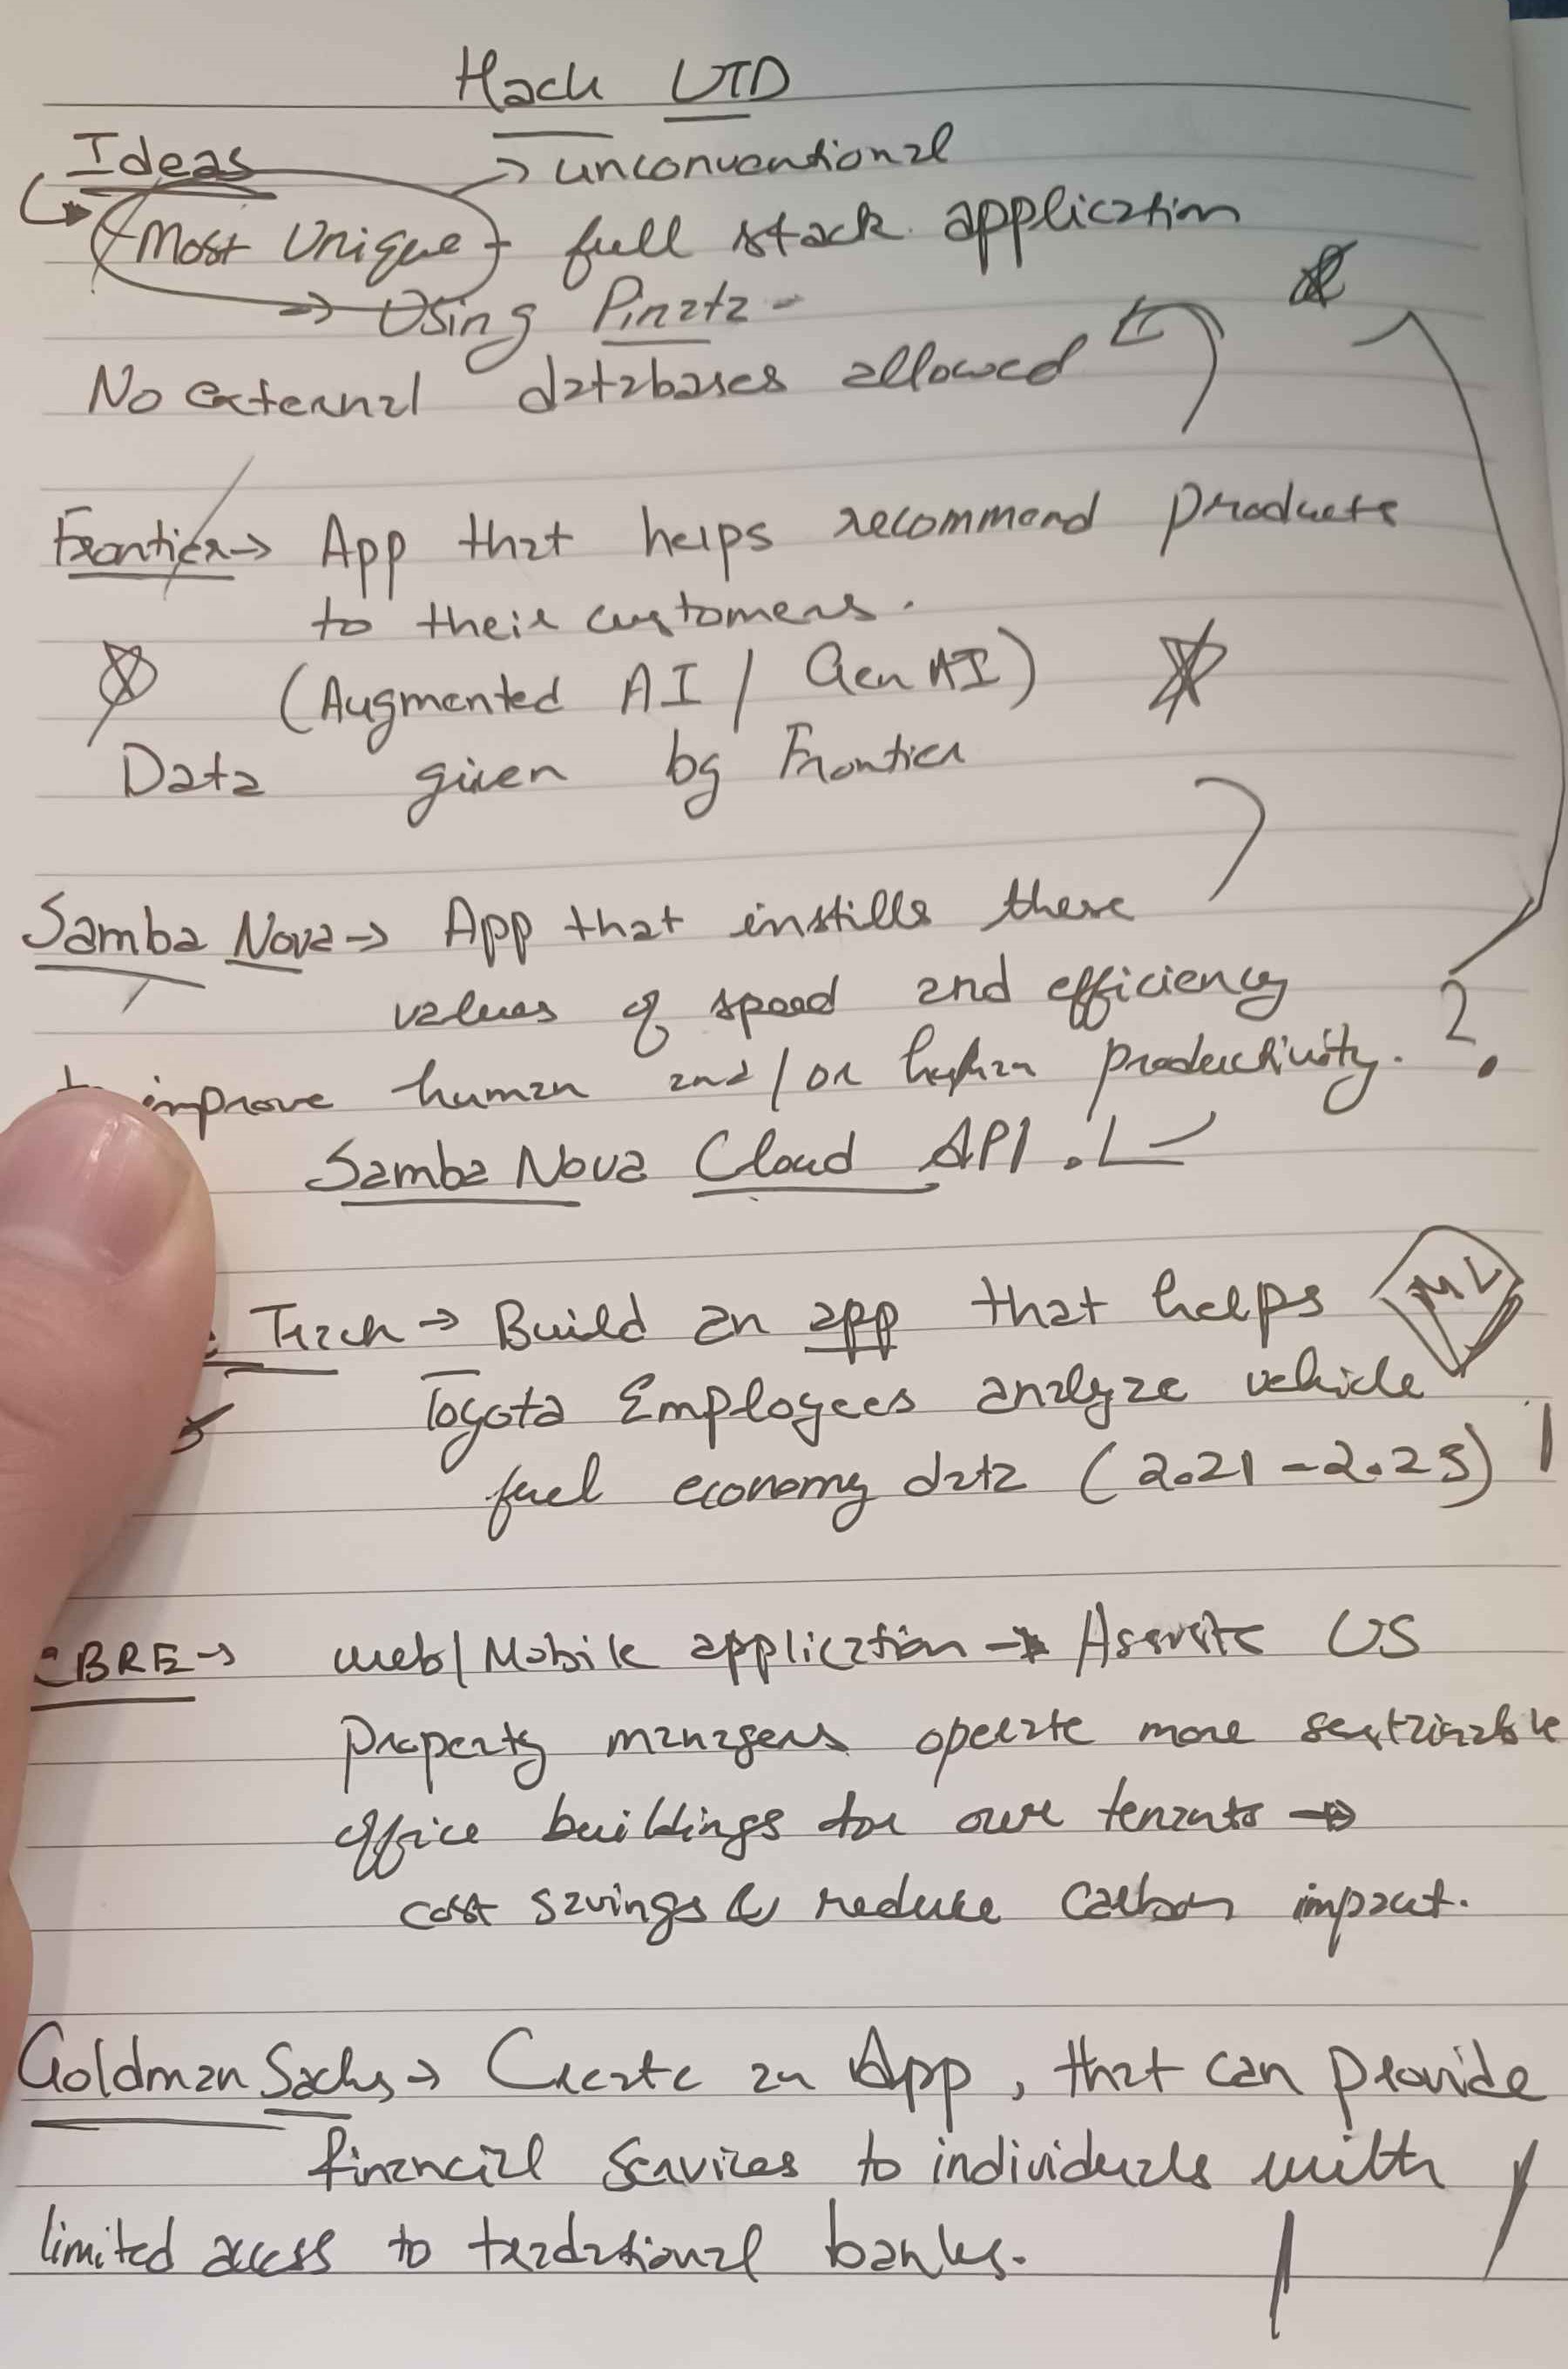 Hack UTD
Ideas
→ unconventional
(Most Unique) - full stack application
→ Using Pinata -
No external databases allowed
Frontier → App that helps recommend products
to their customers.
(Augmented AI / Gen AI)
Data given by Frontier
Samba Nova → App that instills these
values of speed and efficiency
improve human and/or human productivity. ?
Samba Nova Cloud API.
Track → Build an app that helps
ML
Toyota Employees analyze vehicle
fuel economy data (2021-2025)
CBRE → web/Mobile application → US
Property managers operate more sustainable
office buildings for our tenants →
cost savings & reduce carbon impact.
Goldman Sachs → Create an App, that can provide
financial services to individuals with
limited access to traditional banks.